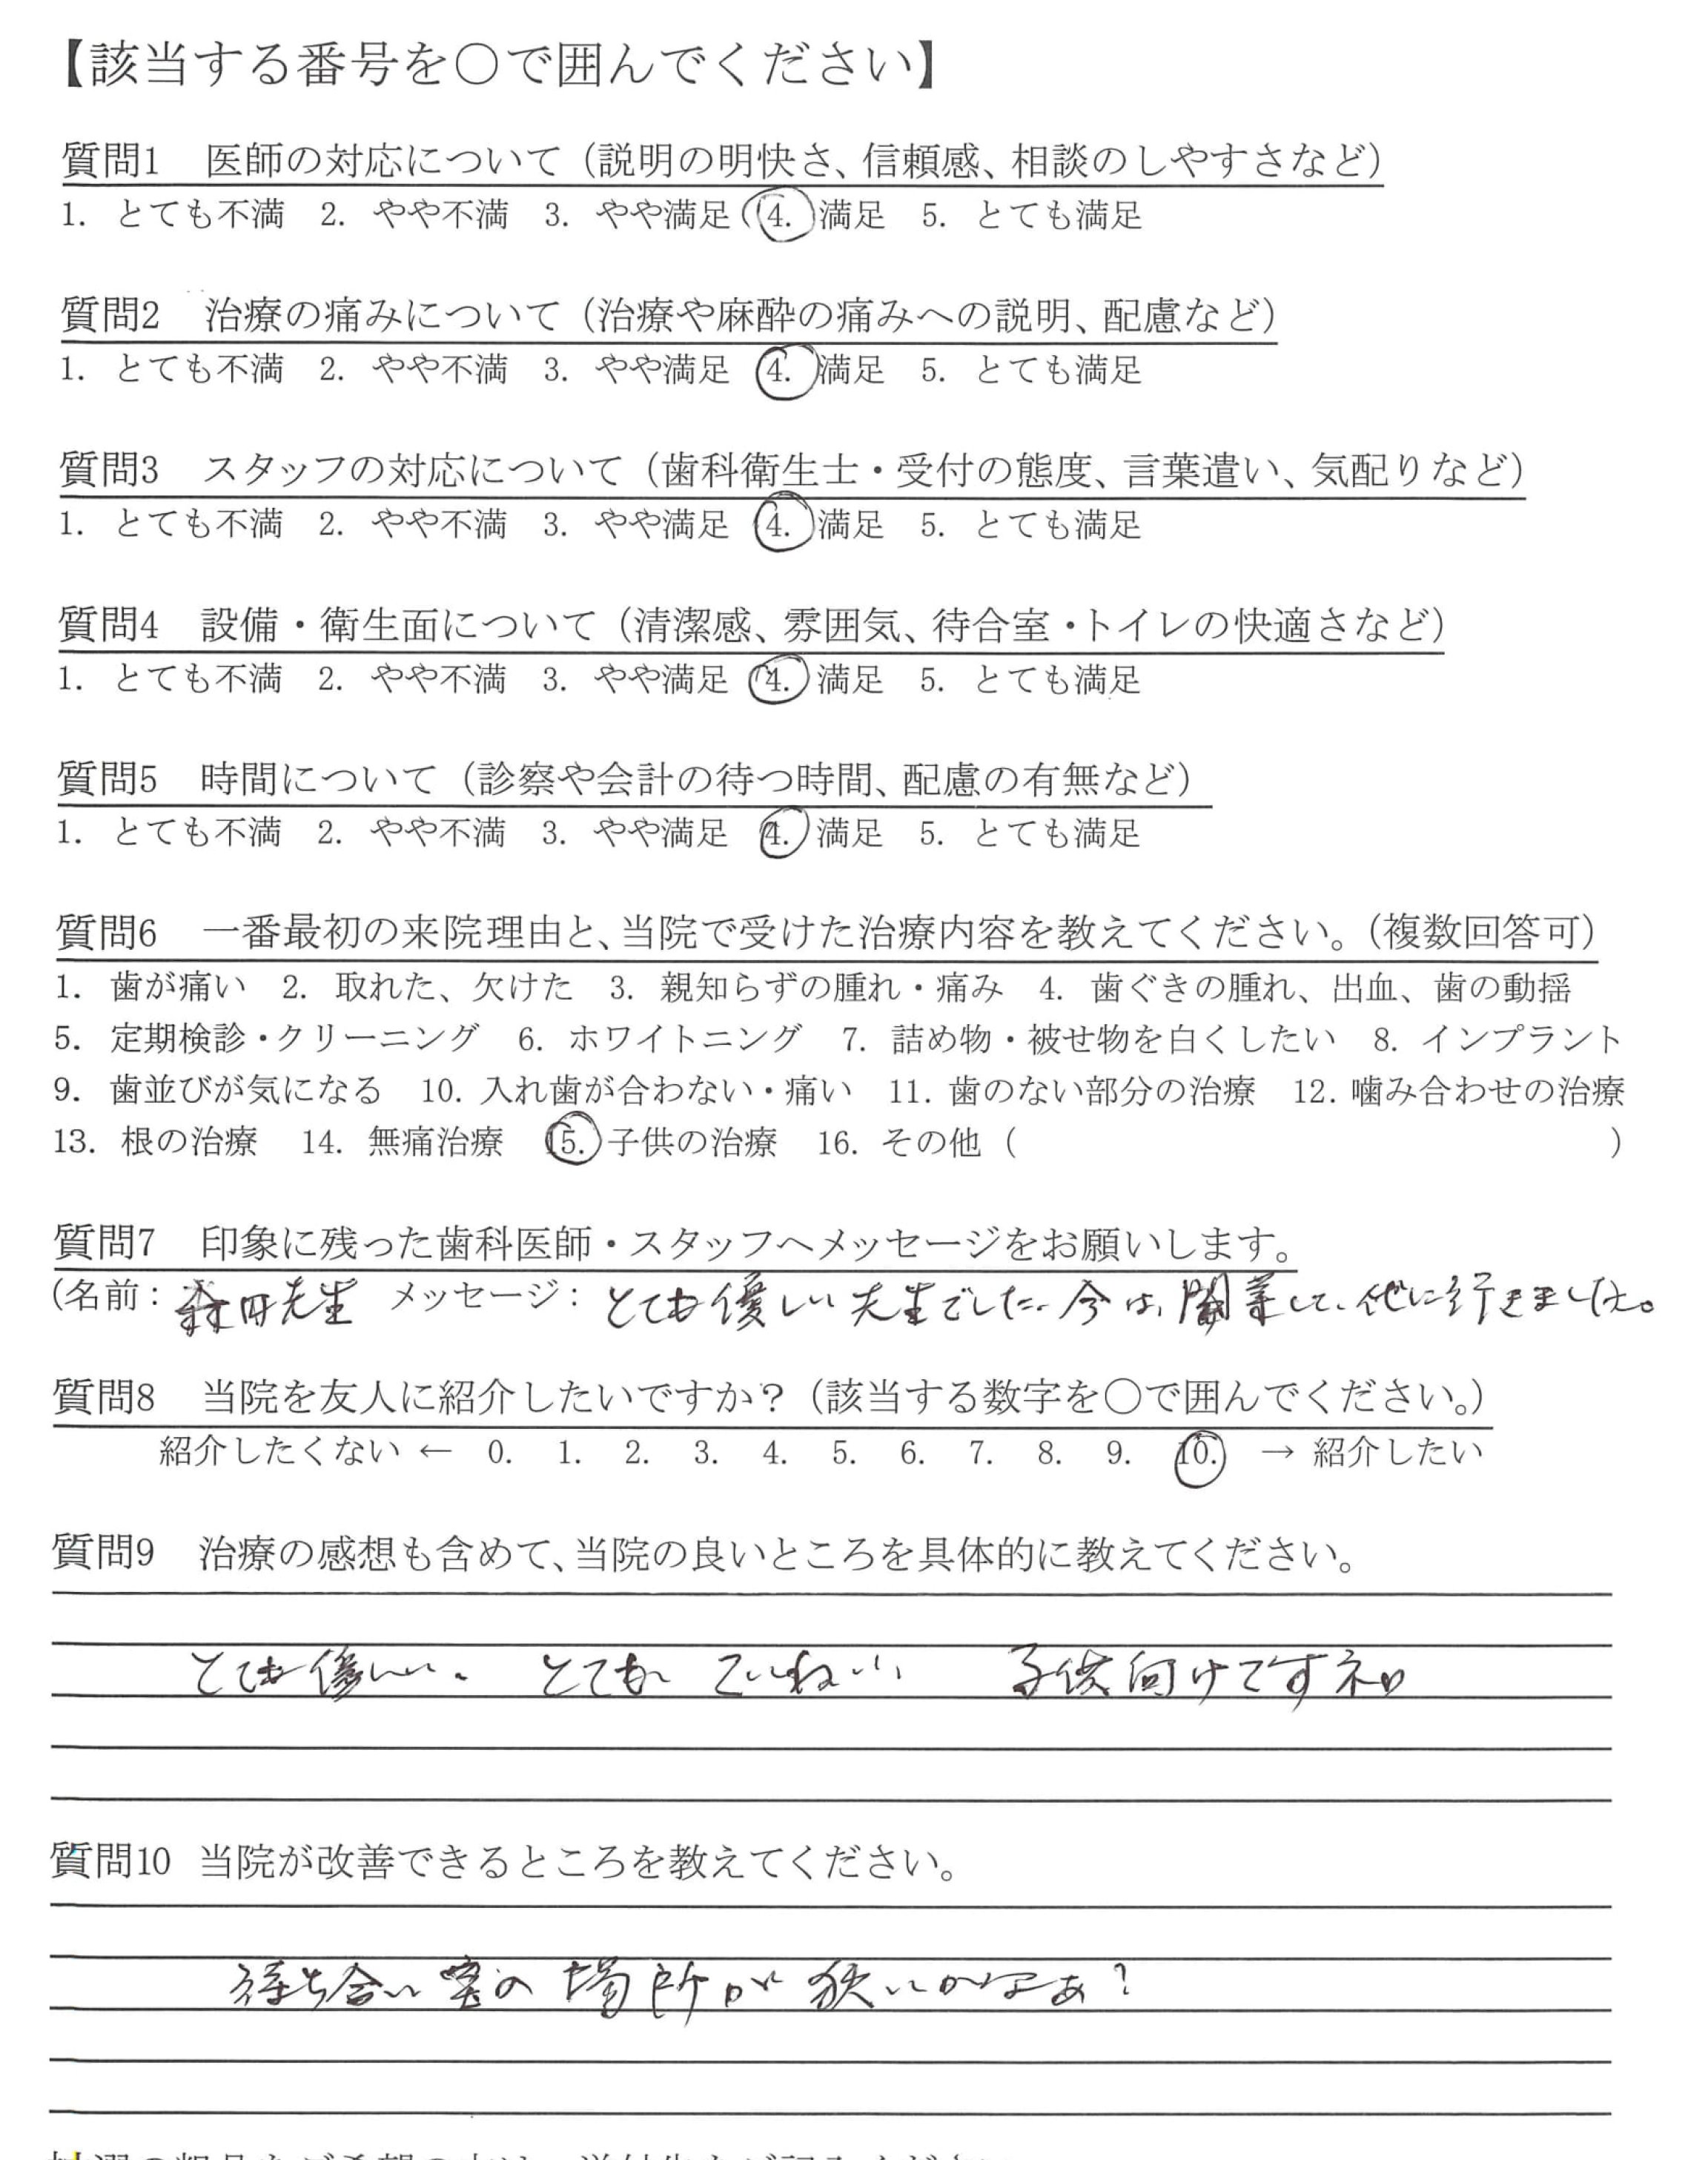 【該当する番号を〇で囲んでください】
質問1 医師の対応について（説明の明快さ、信頼感、相談のしやすさなど）
1. とても不満 2. やや不満 3. やや満足 4. 満足 5. とても満足
質問2 治療の痛みについて（治療や麻酔の痛みへの説明、配慮など）
1. とても不満 2. やや不満 3. やや満足 4. 満足 5. とても満足
質問3 スタッフの対応について（歯科衛生士・受付の態度、言葉遣い、気配りなど）
1. とても不満 2. やや不満 3. やや満足 4. 満足 5. とても満足
質問4 設備・衛生面について（清潔感、雰囲気、待合室・トイレの快適さなど）
1. とても不満 2. やや不満 3. やや満足 4. 満足 5. とても満足
質問5 時間について（診察や会計の待つ時間、配慮の有無など）
1. とても不満 2. やや不満 3. やや満足 4. 満足 5. とても満足
質問6 一番最初の来院理由と、当院で受けた治療内容を教えてください。（複数回答可）
1. 歯が痛い 2. 取れた、欠けた 3. 親知らずの腫れ・痛み 4. 歯ぐきの腫れ、出血、歯の動揺
5. 定期検診・クリーニング 6. ホワイトニング 7. 詰め物・被せ物を白くしたい 8. インプラント
9. 歯並びが気になる 10. 入れ歯が合わない・痛い 11. 歯のない部分の治療 12. 噛み合わせの治療
13. 根の治療 14. 無痛治療 15. 子供の治療 16. その他（ ）
質問7 印象に残った歯科医師・スタッフへメッセージをお願いします。
（名前：森田先生 メッセージ：とても優しい先生でした。今は、開業して、他に行きました。
質問8 当院を友人に紹介したいですか？（該当する数字を〇で囲んでください。）
紹介したくない ← 0. 1. 2. 3. 4. 5. 6. 7. 8. 9. 10. → 紹介したい
質問9 治療の感想も含めて、当院の良いところを具体的に教えてください。
とても優しい。 とても ていねい 子供向けですネ。
質問10 当院が改善できるところを教えてください。
待ち合い室の場所が狭いかなぁ？